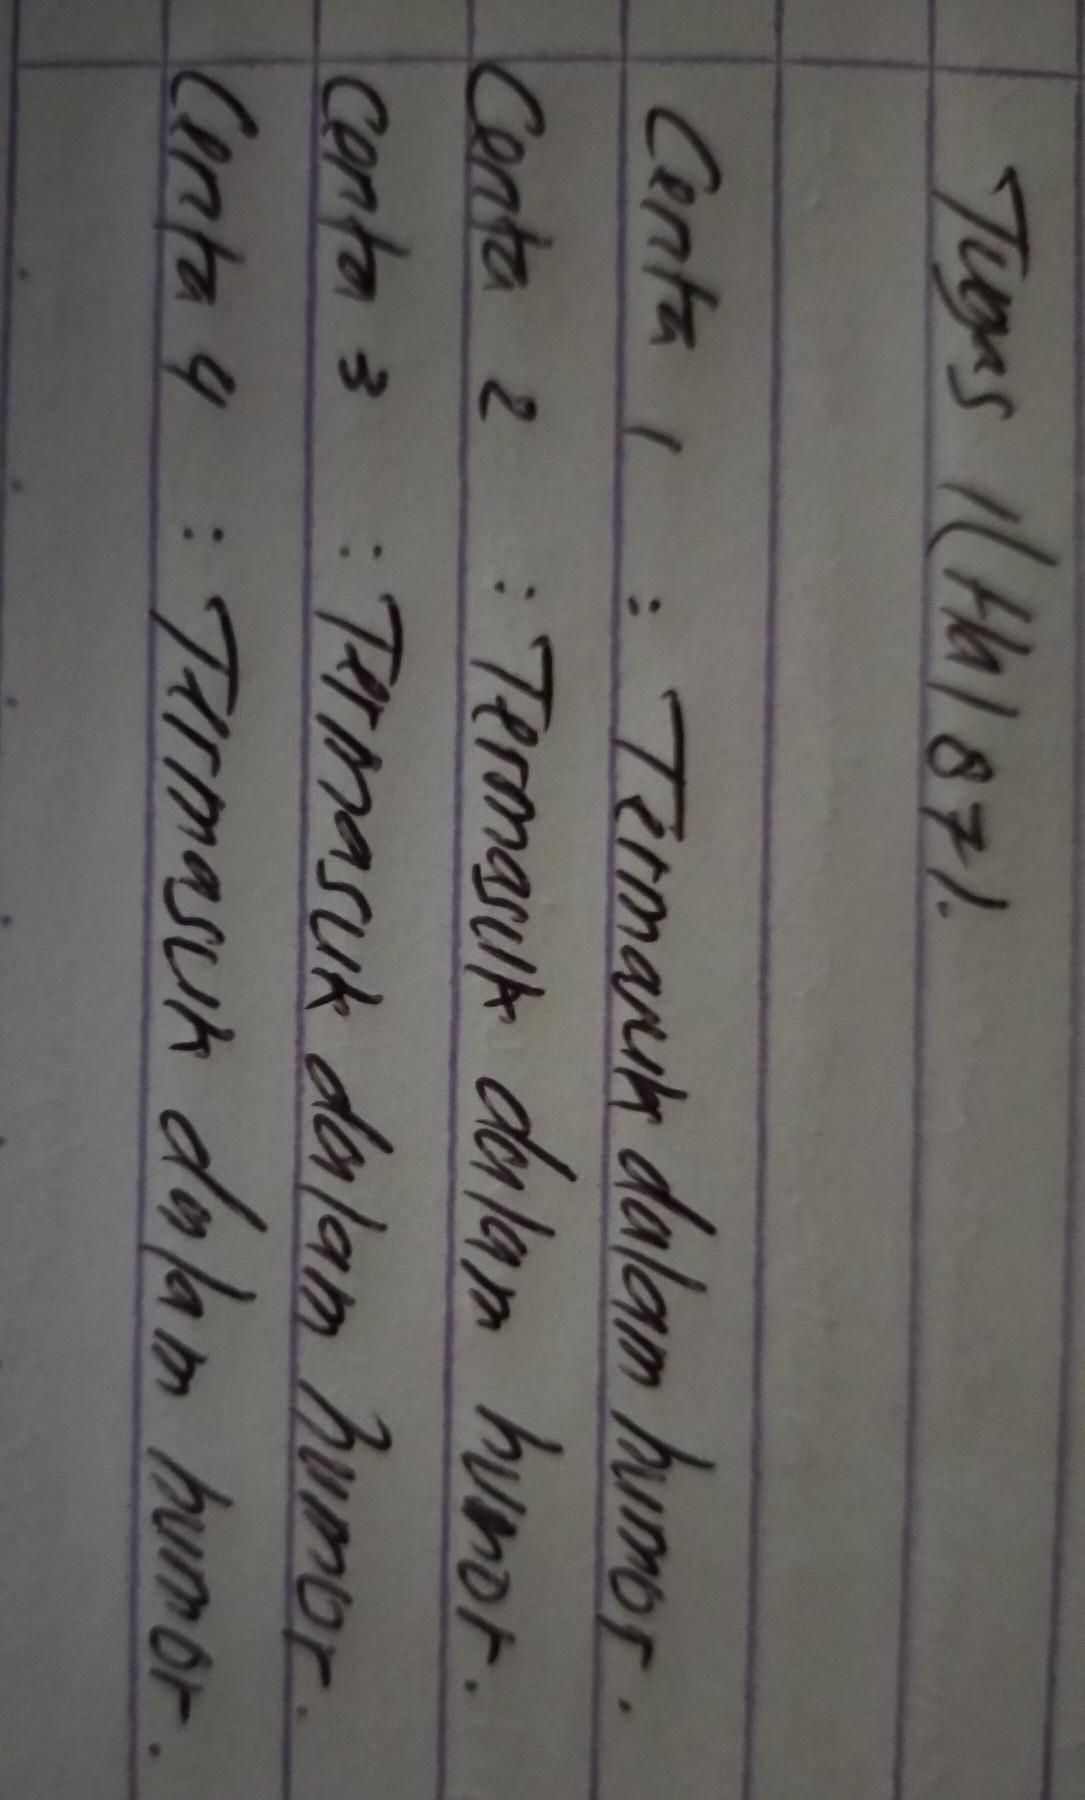 Tugas 1 (Hal 87).
Cerita 1 : Termasuk dalam humor.
Cerita 2 : Termasuk dalam humor.
Cerita 3 : Termasuk dalam humor.
Cerita 4 : Termasuk dalam humor.